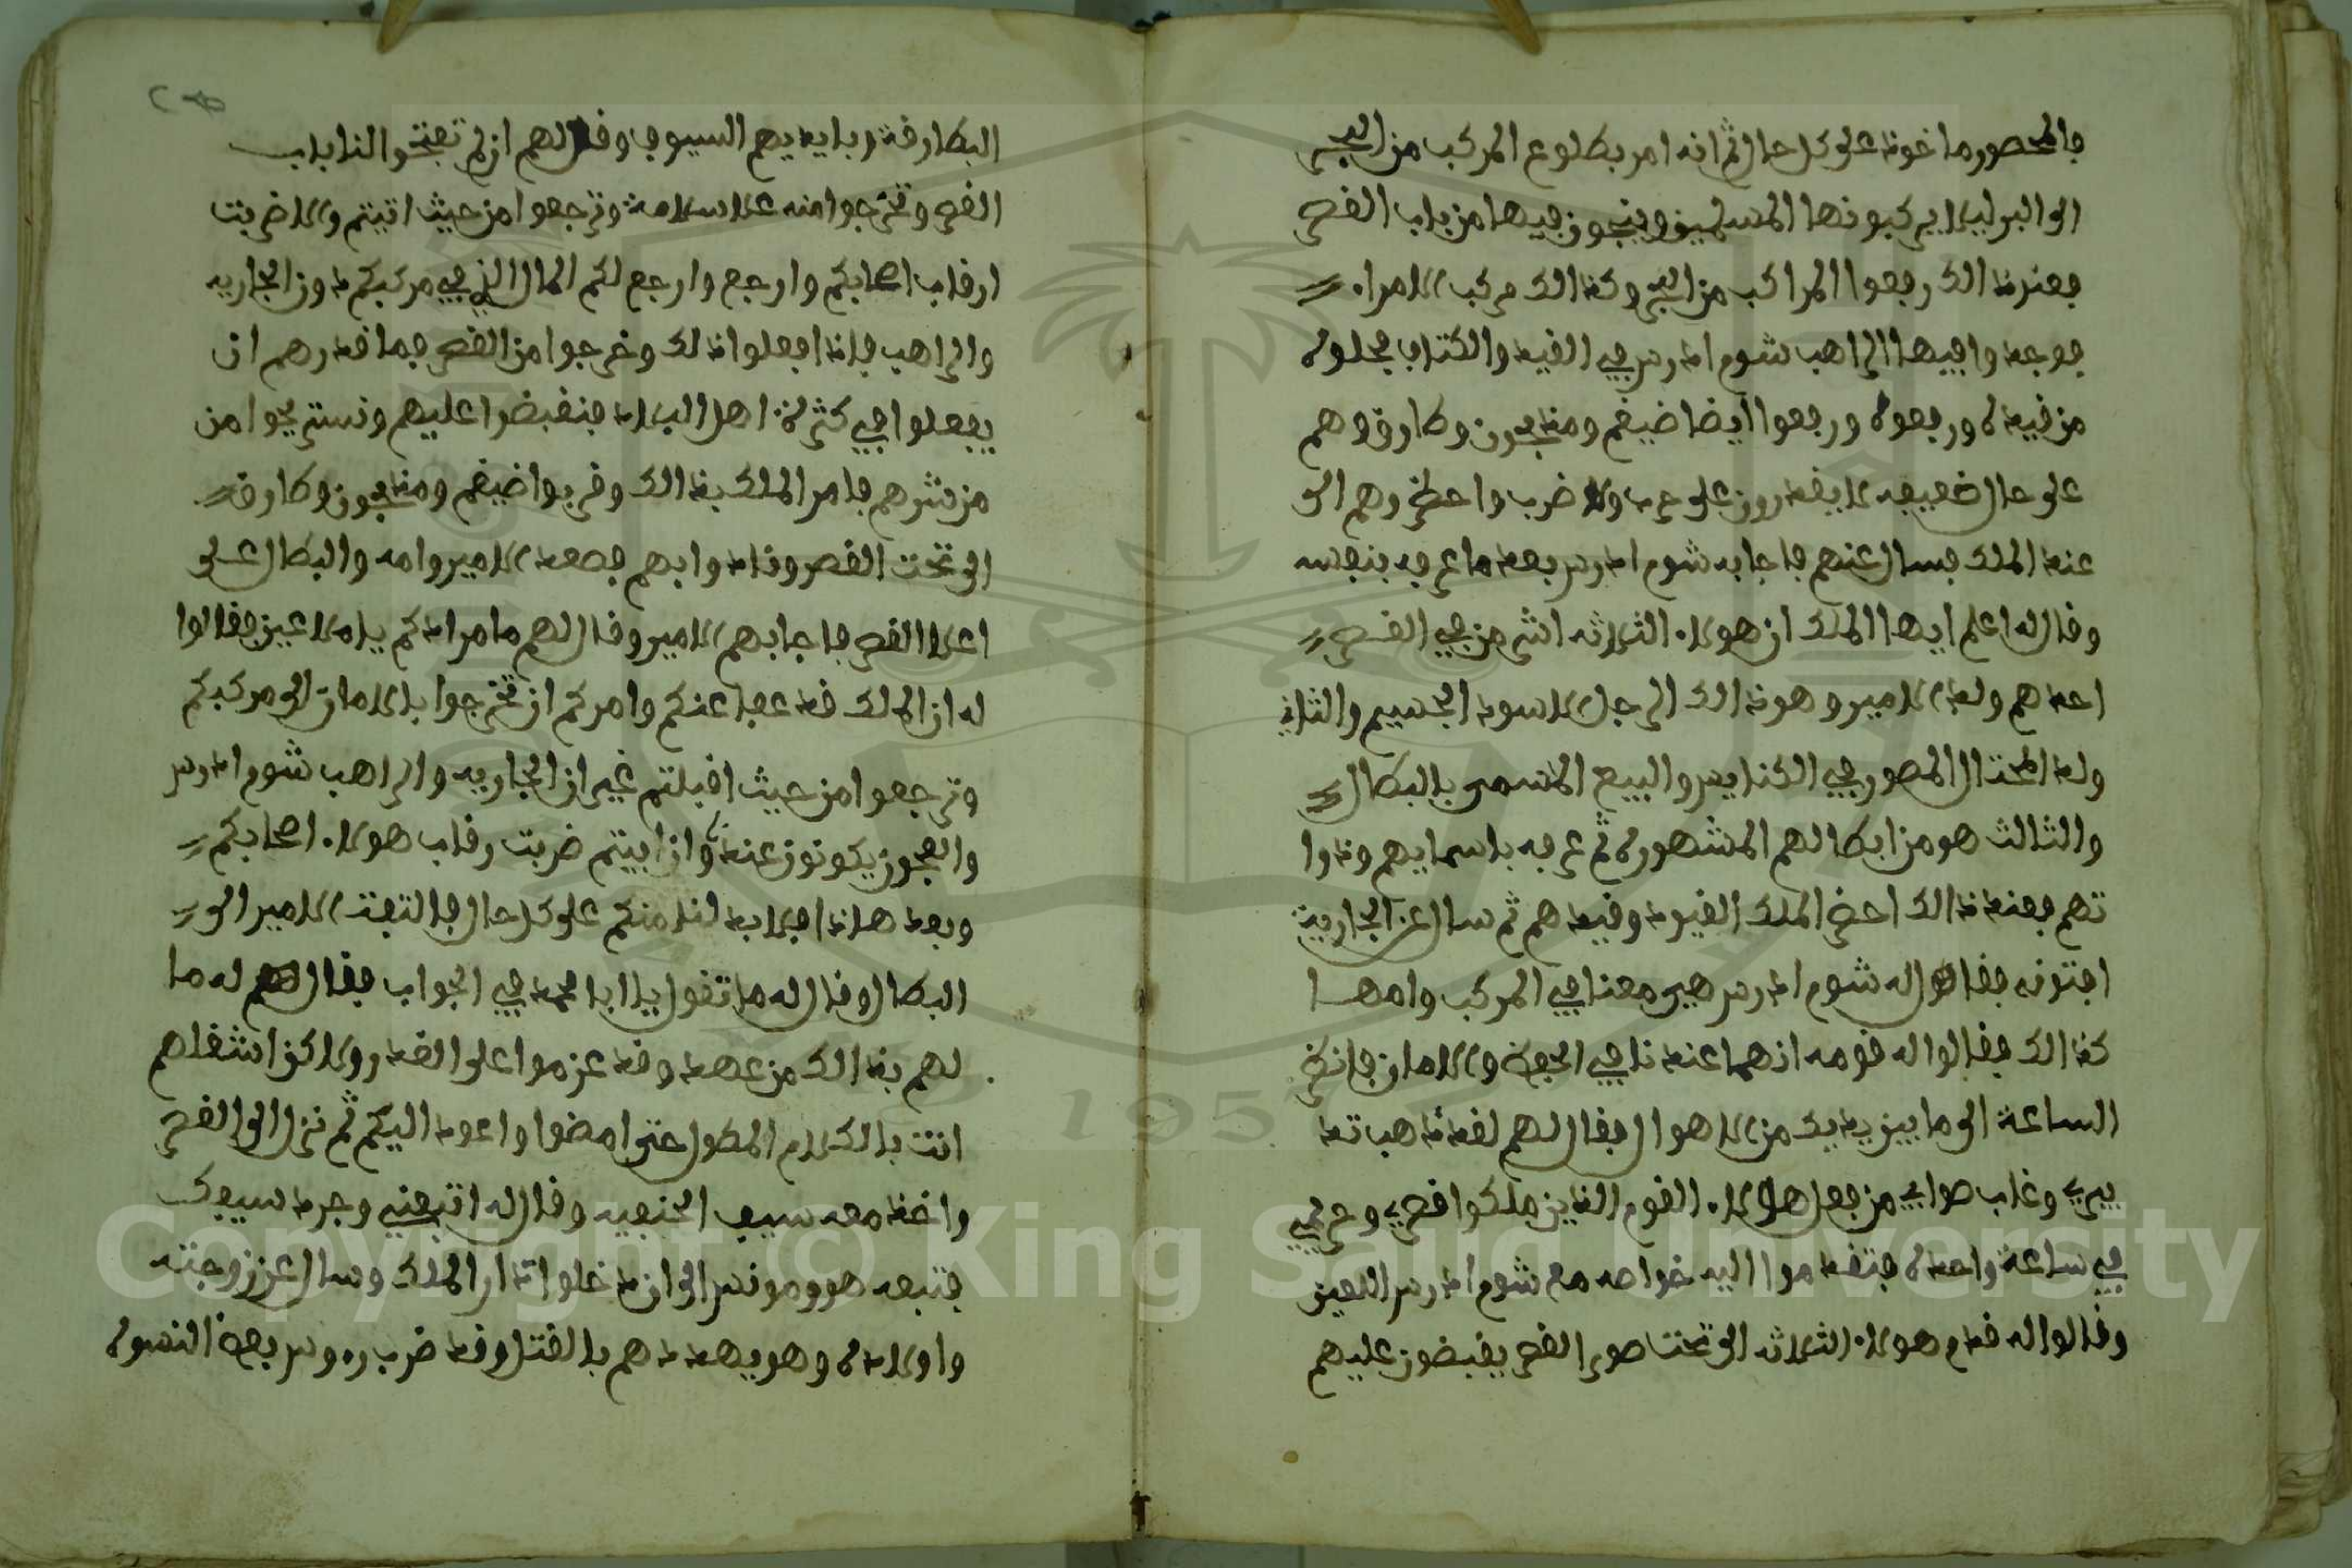 فالمحصور ماخوذ على كل حال ثم انه امر بطلوع المركب من البحر
الى البر ليلا يركبونها المسلمين وينجون فيها من باب القصر
فعند ذالك رفعوا المراكب من البحر وكذالك مركب الامراء
فوجدوا فيها الراهب شوم ادرس في القيد والكتاف فحلوه
من قيده ورفعوه ورفعوا ايضا ضيغم ومذبحون وطارق وهم
على حال ضعيفه لا يقدرون على حرب ولا ضرب واحضروهم الى
عند الملك فسال عنهم فاجابه شوم ادرس بعد ما عرفه بنفسه
وقال له اعلم ايها الملك ان هولاء الثلاثه اشر من في القصر
احدهم ولد الامير وهو ذالك الرجل الاسود الجسيم والثاني
ولد المحتال المصور في الكنايس والبيع المسمى بالبطال
والثالث هو من ابطالهم المشهوره ثم عرفه باسمايهم وذوا
تهم فعند ذالك احضر الملك القيود وقيدهم ثم سال عن الجارية
افتونه فقال له شوم ادرس هي معنا في المركب وامها
كذالك فقالوا له قومه انهما عندنا في الحفظ والامان فانظر
الساعة الى ما بين يديك من الاهوال فقال لهم لقد ذهب تد
بيري وغاب صوابي من فعل هولاء القوم الذين ملكوا قصري وحريمي
في ساعة واحده فتقدموا اليه خواصه مع شوم ادرس اللعين
وقالوا له قدم هولاء الثلاثه الى تحت صور القصر يقبضون عليهم
البطارقة وبايديهم السيوف وقال لهم ان لم تفتحوا لنا باب
القصر وتخرجوا منه على سلامة وترجعوا من حيث اتيتم والا ضربت
ارقاب اصحابكم وارجع وارجع لكم المال الذي في مركبكم دون الجاريه
والراهب فاذا فعلوا ذلك وخرجوا من القصر فما قدرهم ان
يفعلوا في كثرة اهل البلاد فنقبضوا عليهم ونستريحوا من
من شرهم فامر الملك بذالك وقربوا ضيغم ومذبحون وطارق
الى تحت القصر وناد وابهم فصعد الامير وامه والبطال على
اعلا القصر فاجابهم الامير وقال لهم ما مرادكم يا ملاعين فقالوا
له ان الملك قد عفا عنكم وامركم ان تخرجوا بالامان الى مركبكم
وترجعوا من حيث اقبلتم غير ان الجاريه والراهب شوم ادرس
والعجوز يكونون عندنا وان ابيتم ضربت رقاب هولاء اصحابكم
وبعد هاذا فلا بد لنا منكم على كل حال فالتفت الامير الى
البطال وقال له ما تقول يا ابا محمد في الجواب فقال له ما
لهم بذالك من عهد وقد عزموا على الغدر ولاكن اشغلهم
انت بالكلام المطول حتى امضوا واعود اليكم ثم نزل الى القصر
واخذ معه سيف الحنفيه وقال له اتبعني وجرد سيفك
فتبعه هو ومونس الى ان دخلوا دار الملك وسال عن زوجته
واولاده وهو يهددهم بالقتل وقد ضرب روس بعض النسوه